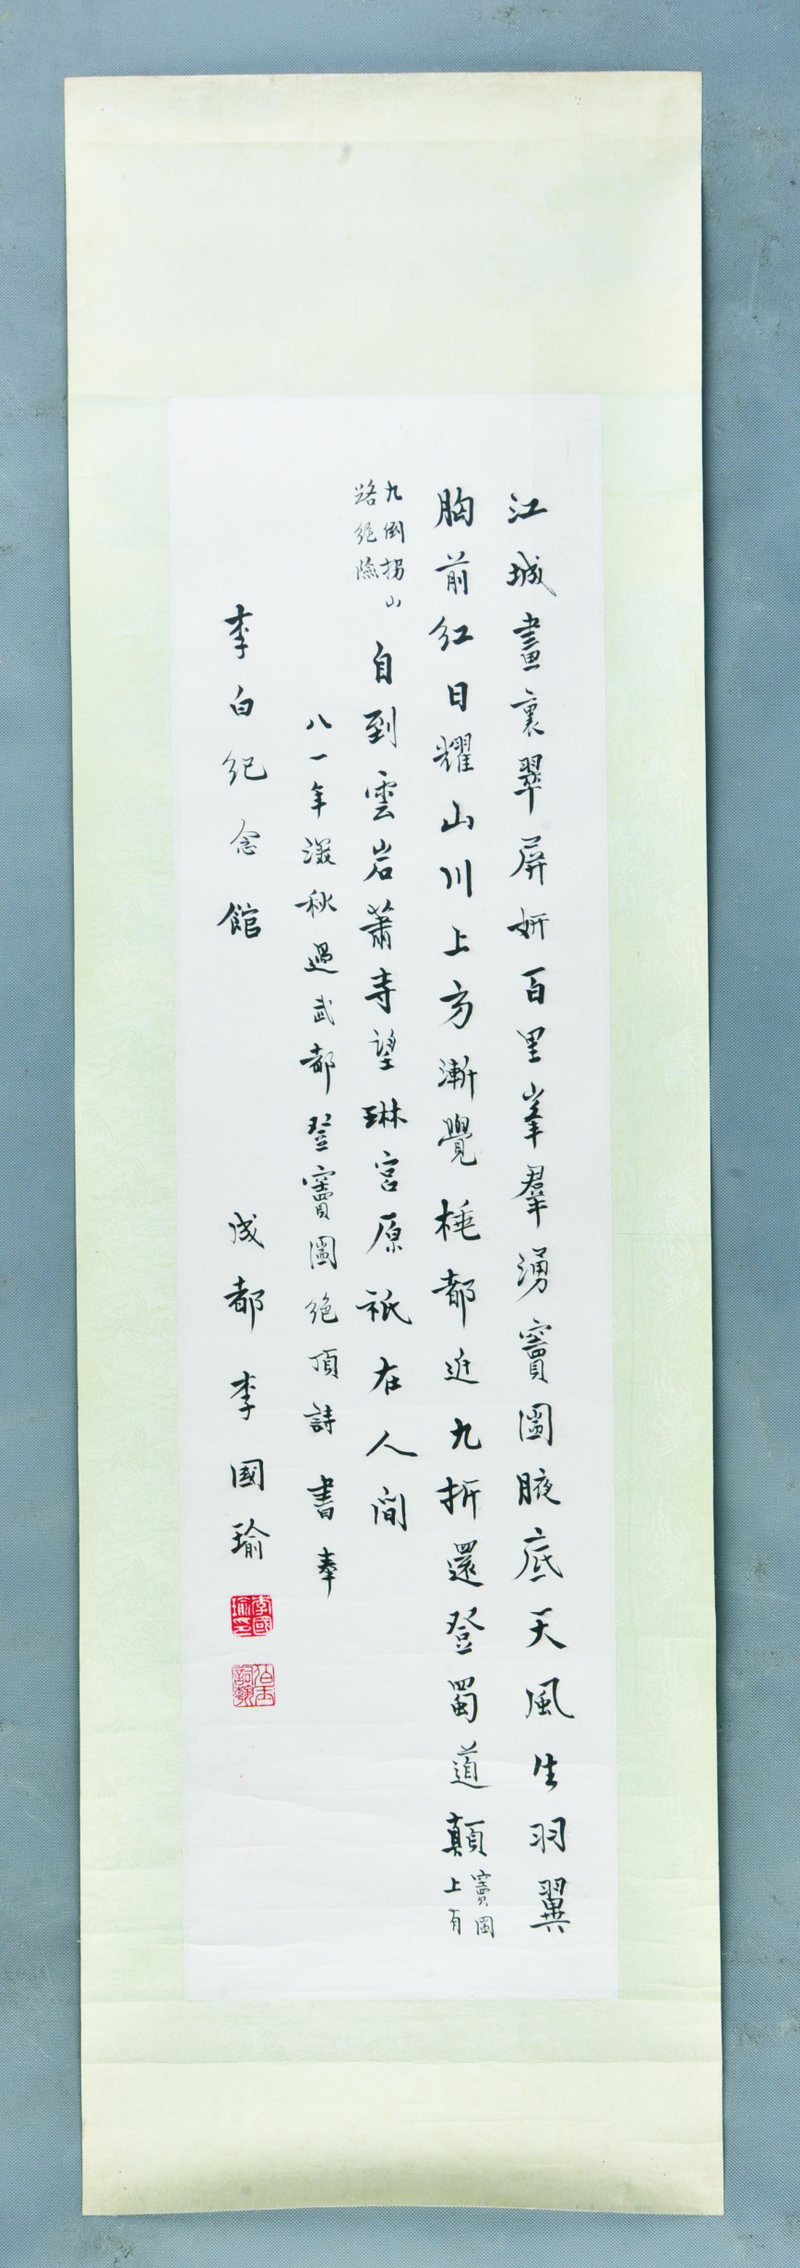 江城畫裏翠屏妍百里峯羣湧竇圌腋底天風生羽翼
胸前紅日耀山川上方漸覺極都近九折還登蜀道顛竇圌上有
九倒拐山路絕險自到雲岩蕭寺望琳宮原祇在人間
八一年深秋過武都登竇圌絕頂詩書奉
李白紀念館
成都李國瑜
李國瑜印